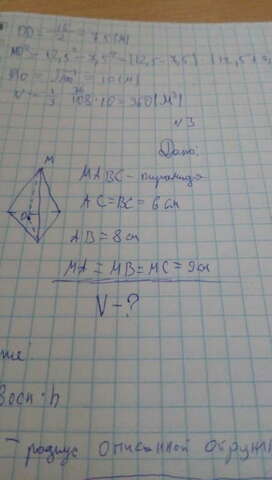 DO = 15/2 = 7,5 (м)
MO² = 12,5² - 7,5² = (12,5 - 7,5)
MO = √100 = 10 (м)
V = 1/3 108 · 10 = 360 (м³)
№3
Дано:
M
O
MABC - пирамида
AC = BC = 6 см
AB = 8 см
MA = MB = MC = 9 см
V - ?
Sосн · h
- радиус описанной окружн